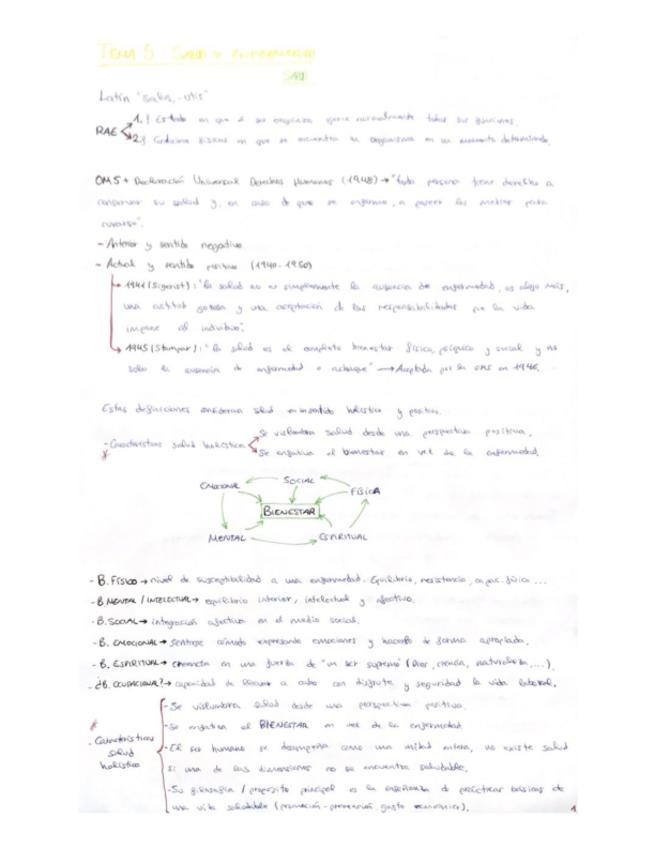 TEMA 5: SALUD Y ENFERMEDAD
SALUD
Latín "salus, -utis"
RAE 1.) Estado en que el ser orgánico ejerce normalmente todas sus funciones.
2.) Condiciones físicas en que se encuentra un organismo en un momento determinado.
OMS + Declaración Universal Derechos Humanos (1948) → "toda persona tiene derecho a
conservar su salud y, en caso de que se enferme, a poner los medios para
curarse".
- Anterior y sentido negativo
- Actual y sentido positivo (1940-1950)
→ 1941 (Sigerist): "la salud no es simplemente la ausencia de enfermedad, es algo más,
una actitud gozosa y una aceptación de las responsabilidades que la vida
impone al individuo".
→ 1945 (Stampar): "la salud es el completo bienestar físico, psíquico y social y no
solo la ausencia de enfermedad o achaque" → Aceptada por la OMS en 1946.
Estas definiciones consideran salud en sentido holístico y positivo.
- Características salud holística Se vislumbra salud desde una perspectiva positiva.
* Se enfatiza el bienestar en vez de la enfermedad.
EMOCIONAL SOCIAL
FÍSICA
BIENESTAR
MENTAL ESPIRITUAL
- B. FÍSICO → nivel de susceptibilidad a una enfermedad. Equilibrio, resistencia, capac. física ...
- B MENTAL / INTELECTUAL → equilibrio interior, intelectual y afectivo.
- B. SOCIAL → integración afectiva en el medio social.
- B. EMOCIONAL → sentirse cómodo expresando emociones y hacerlo de forma apropiada.
- B. ESPIRITUAL → creencia en una fuerza de "un ser supremo" (Dios, ciencia, naturaleza, ...).
- ¿B. OCUPACIONAL? → capacidad de llevar a cabo con disfrute y seguridad la vida laboral.
- Se vislumbra salud desde una perspectiva positiva.
* - Se enfatiza el BIENESTAR en vez de la enfermedad
- Características - El ser humano se desempeña como una unidad entera, no existe salud
salud si una de las dimensiones no se encuentra saludable.
holística - Su filosofía / propósito principal es la enseñanza de prácticas básicas de
una vida saludable (promoción-prevención gasto económico).
1